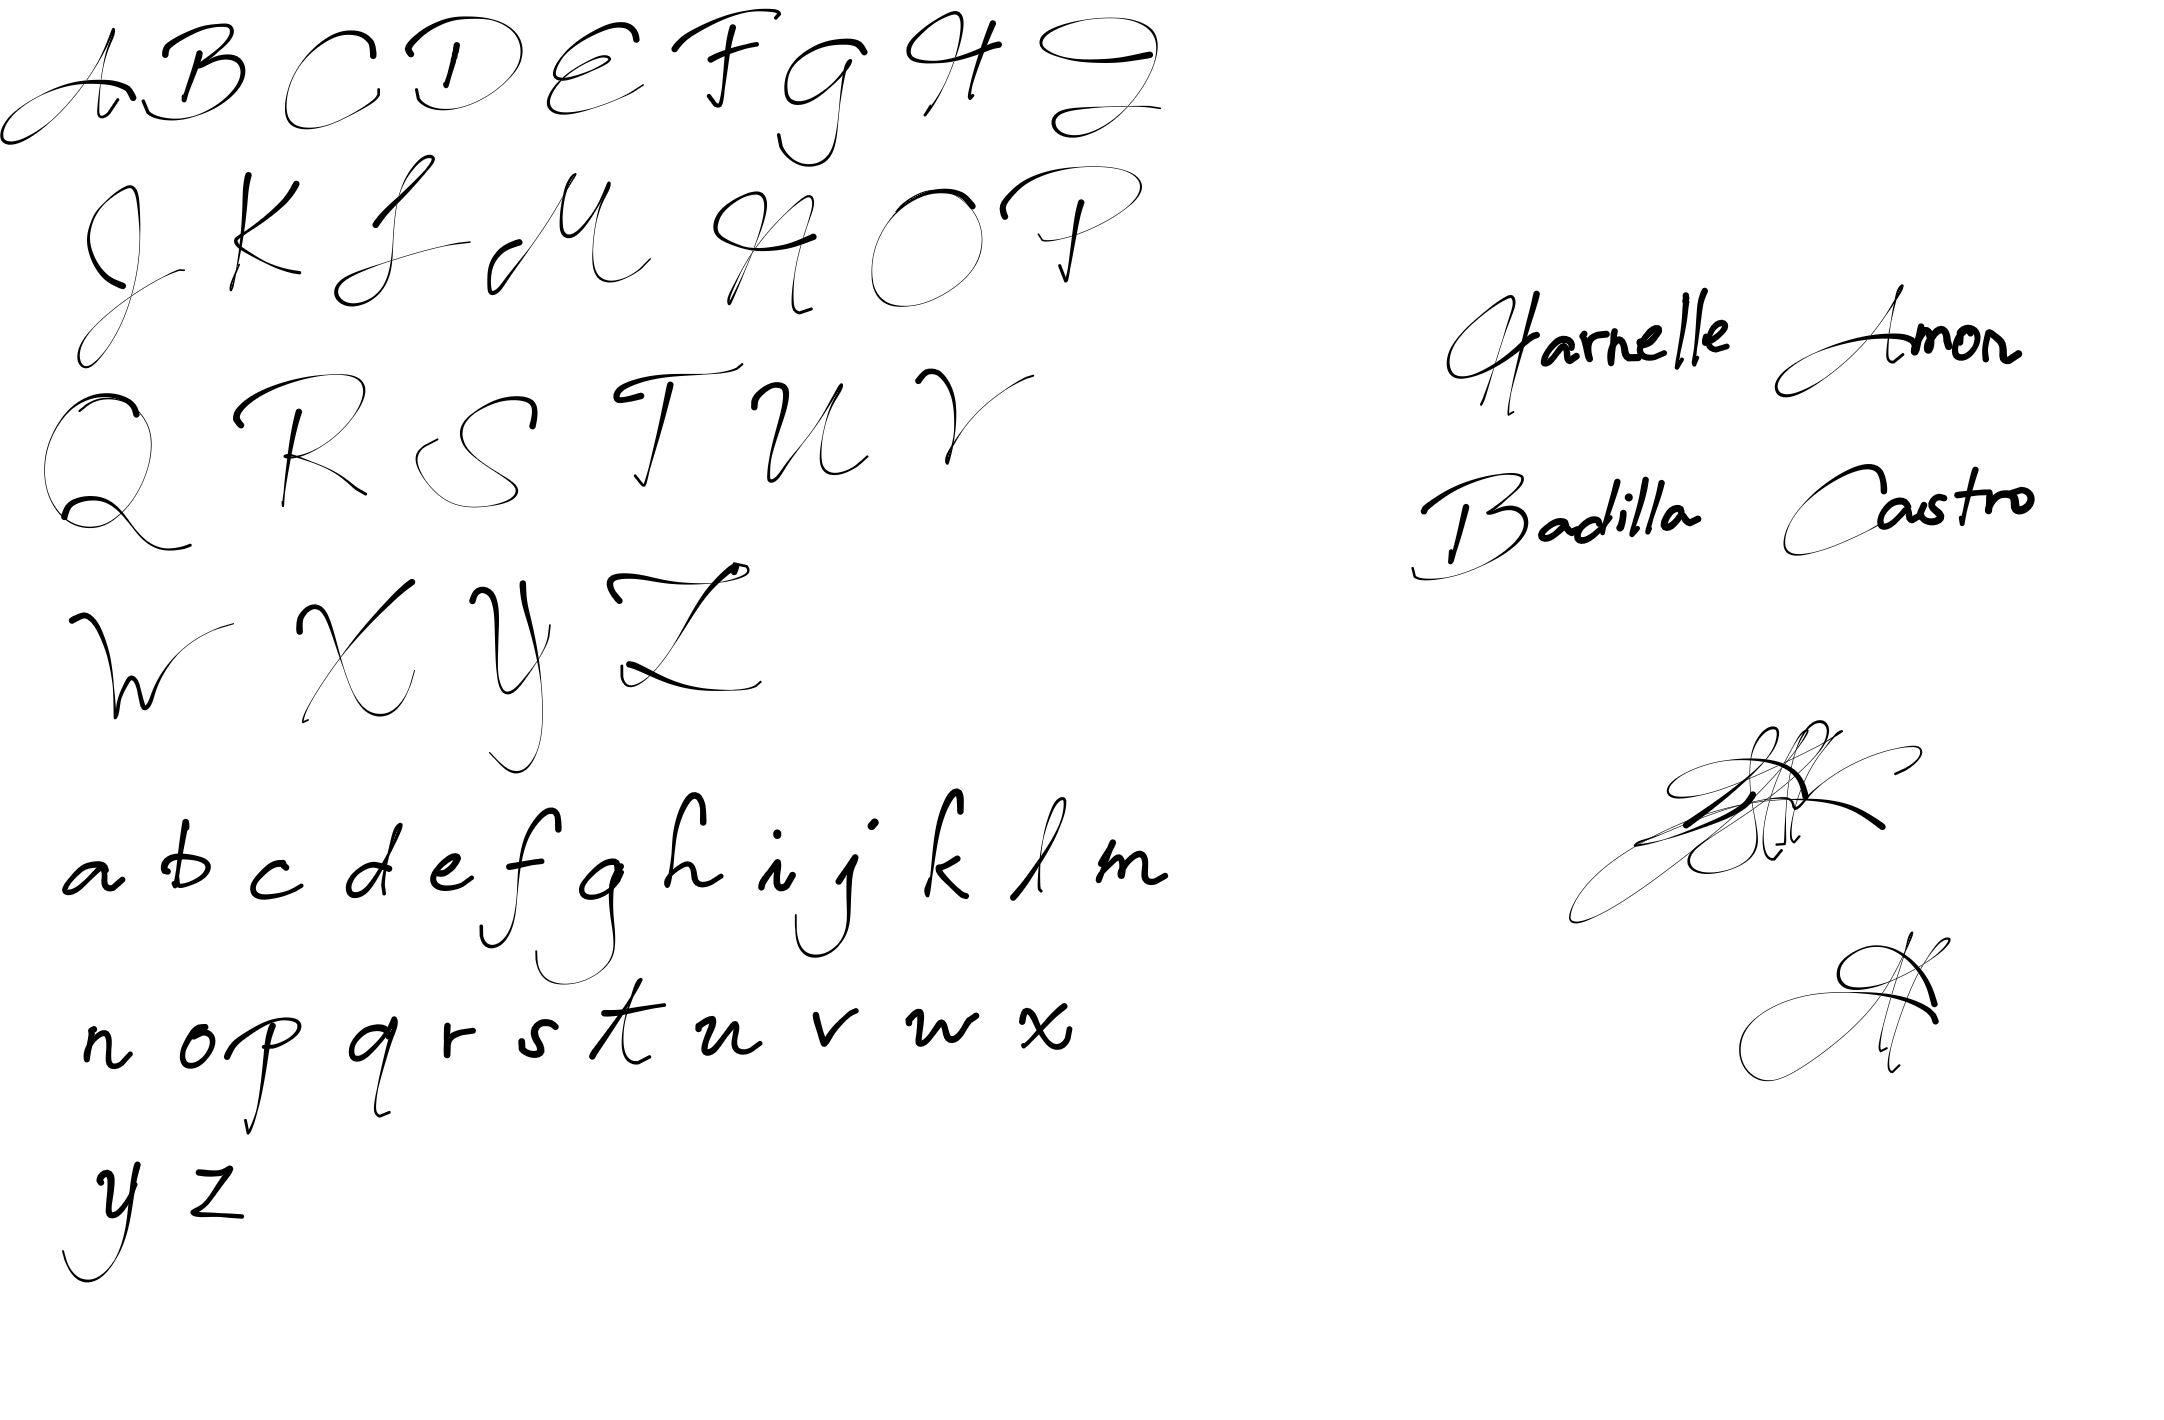 A B C D E F G H I
J K L M N O P
Q R S T U V
W X Y Z
a b c d e f g h i j k l m
n o p q r s t u v w x
y z
Harnelle Amon
Badilla Castro